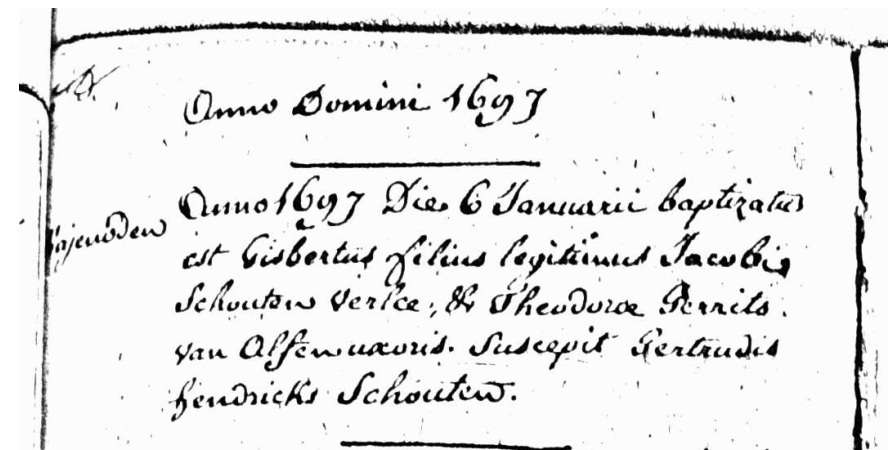 Anno Domini 1697
Anno 1697 Die 6 Januarii baptizatus
est Gisbertus filius legitimus Jacobi
Schouten & Theodoræ Gerrits
van Alfen uxoris. Suscepit Gertrudis
hendricks Schouten.